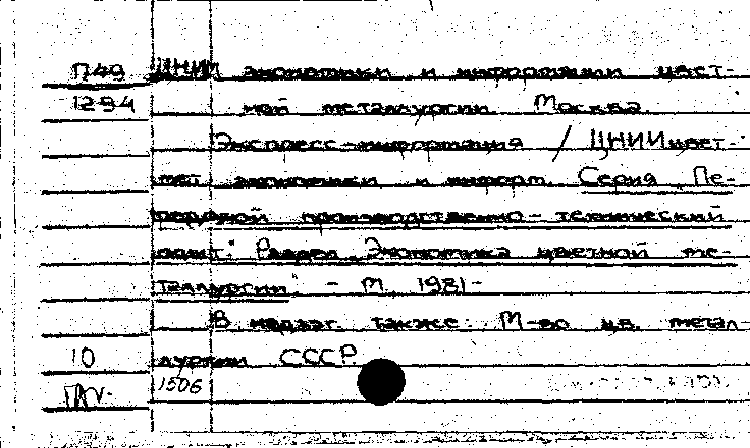 П49 ЦНИИ экономики и информации цвет-
1294 ной металлургии. Москва.
Экспресс-информация / ЦНИИцвет-
мет экономики и информ. Серия "Пе-
редовой производственно-технический
опыт." Раздел "Экономика цветной ме-
таллургии" - М., 1981-
В надзаг. также: М-во цв. метал-
10 лургии СССР
1506